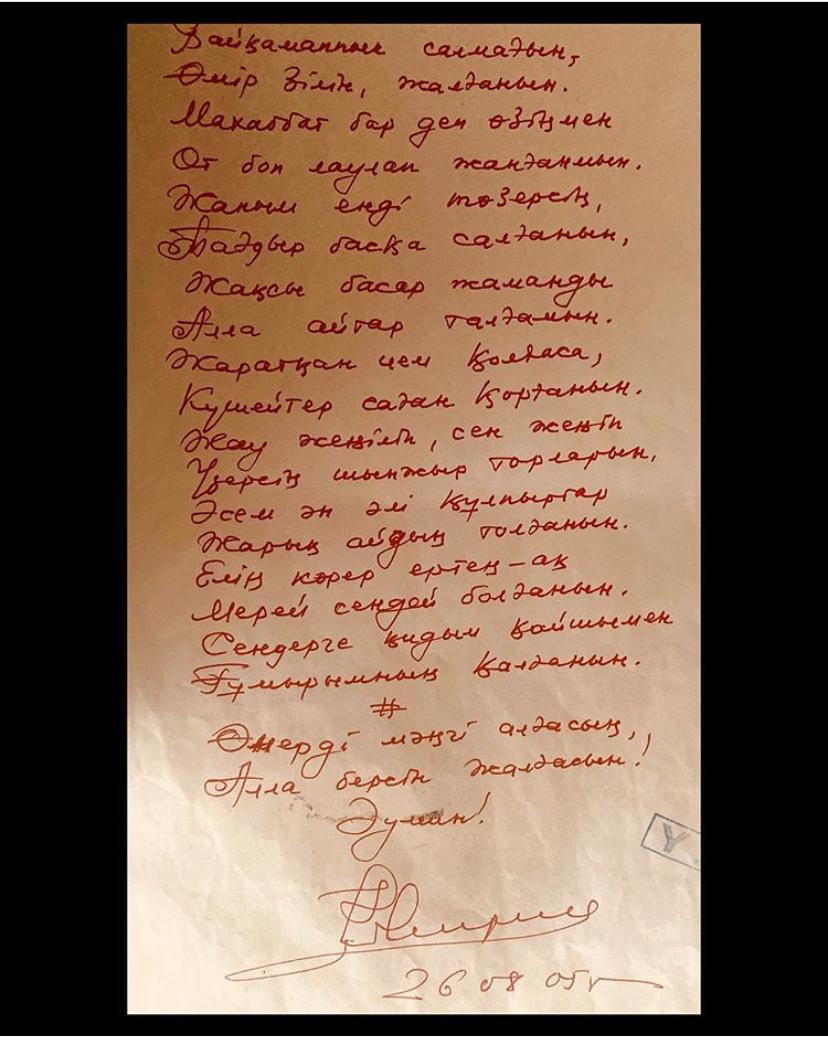 Байқамаппын салмағын,
Өмір зілін, жалғанын.
Махаббат бар деп өзіңмен
От боп лаулап жанғанмын.
Жаным енді төзерсің,
Тағдыр басқа салғанын,
Жақсы басар жаманды
Алла айтар талғамын.
Жаратқан ием қолдаса,
Күшейтер саған қорғанын.
Жау жеңіліп, сен жеңіп
Үзерсің шынжыр торларын,
Әсем ән әлі құлпыртар
Жарық айдың толғанын.
Елің көрер ертең-ақ
Мерей сендей болғанын.
Сендерге қидым қайшымен
Ғұмырымның қалғанын.
#
Өнерді мәңгі алғасың,
Алла берсін жалғасын!
Әумин!
26 08 05г
У.